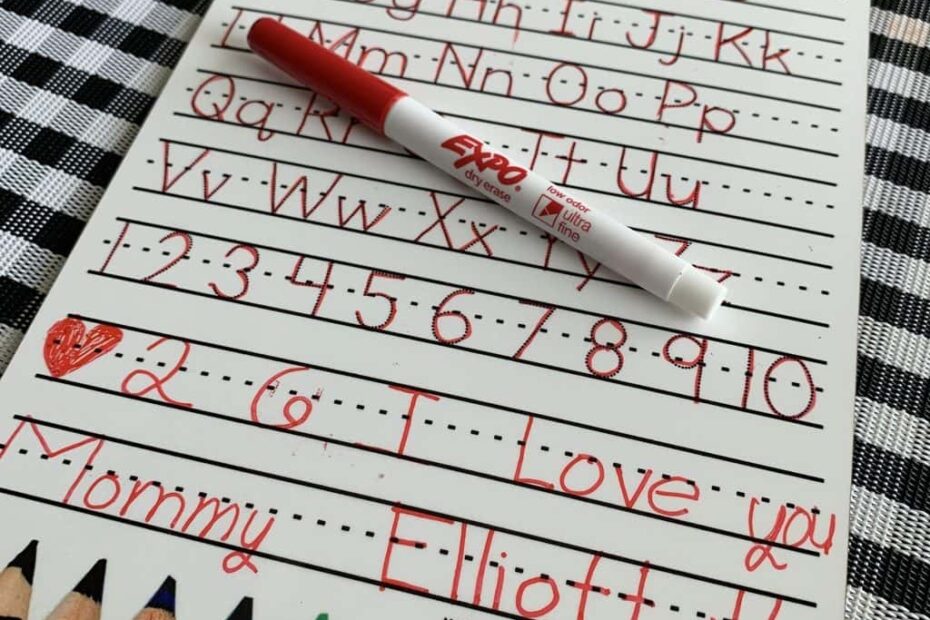 Hh Ii Jj Kk
Mm Nn Oo Pp
Qq Rr Tt Uu
Vv Ww Xx Yy Zz
1 2 3 4 5 6 7 8 9 10
2 6 I Love you
Mommy Elliott
EXPO®
dry erase
low odor
ultra
fine